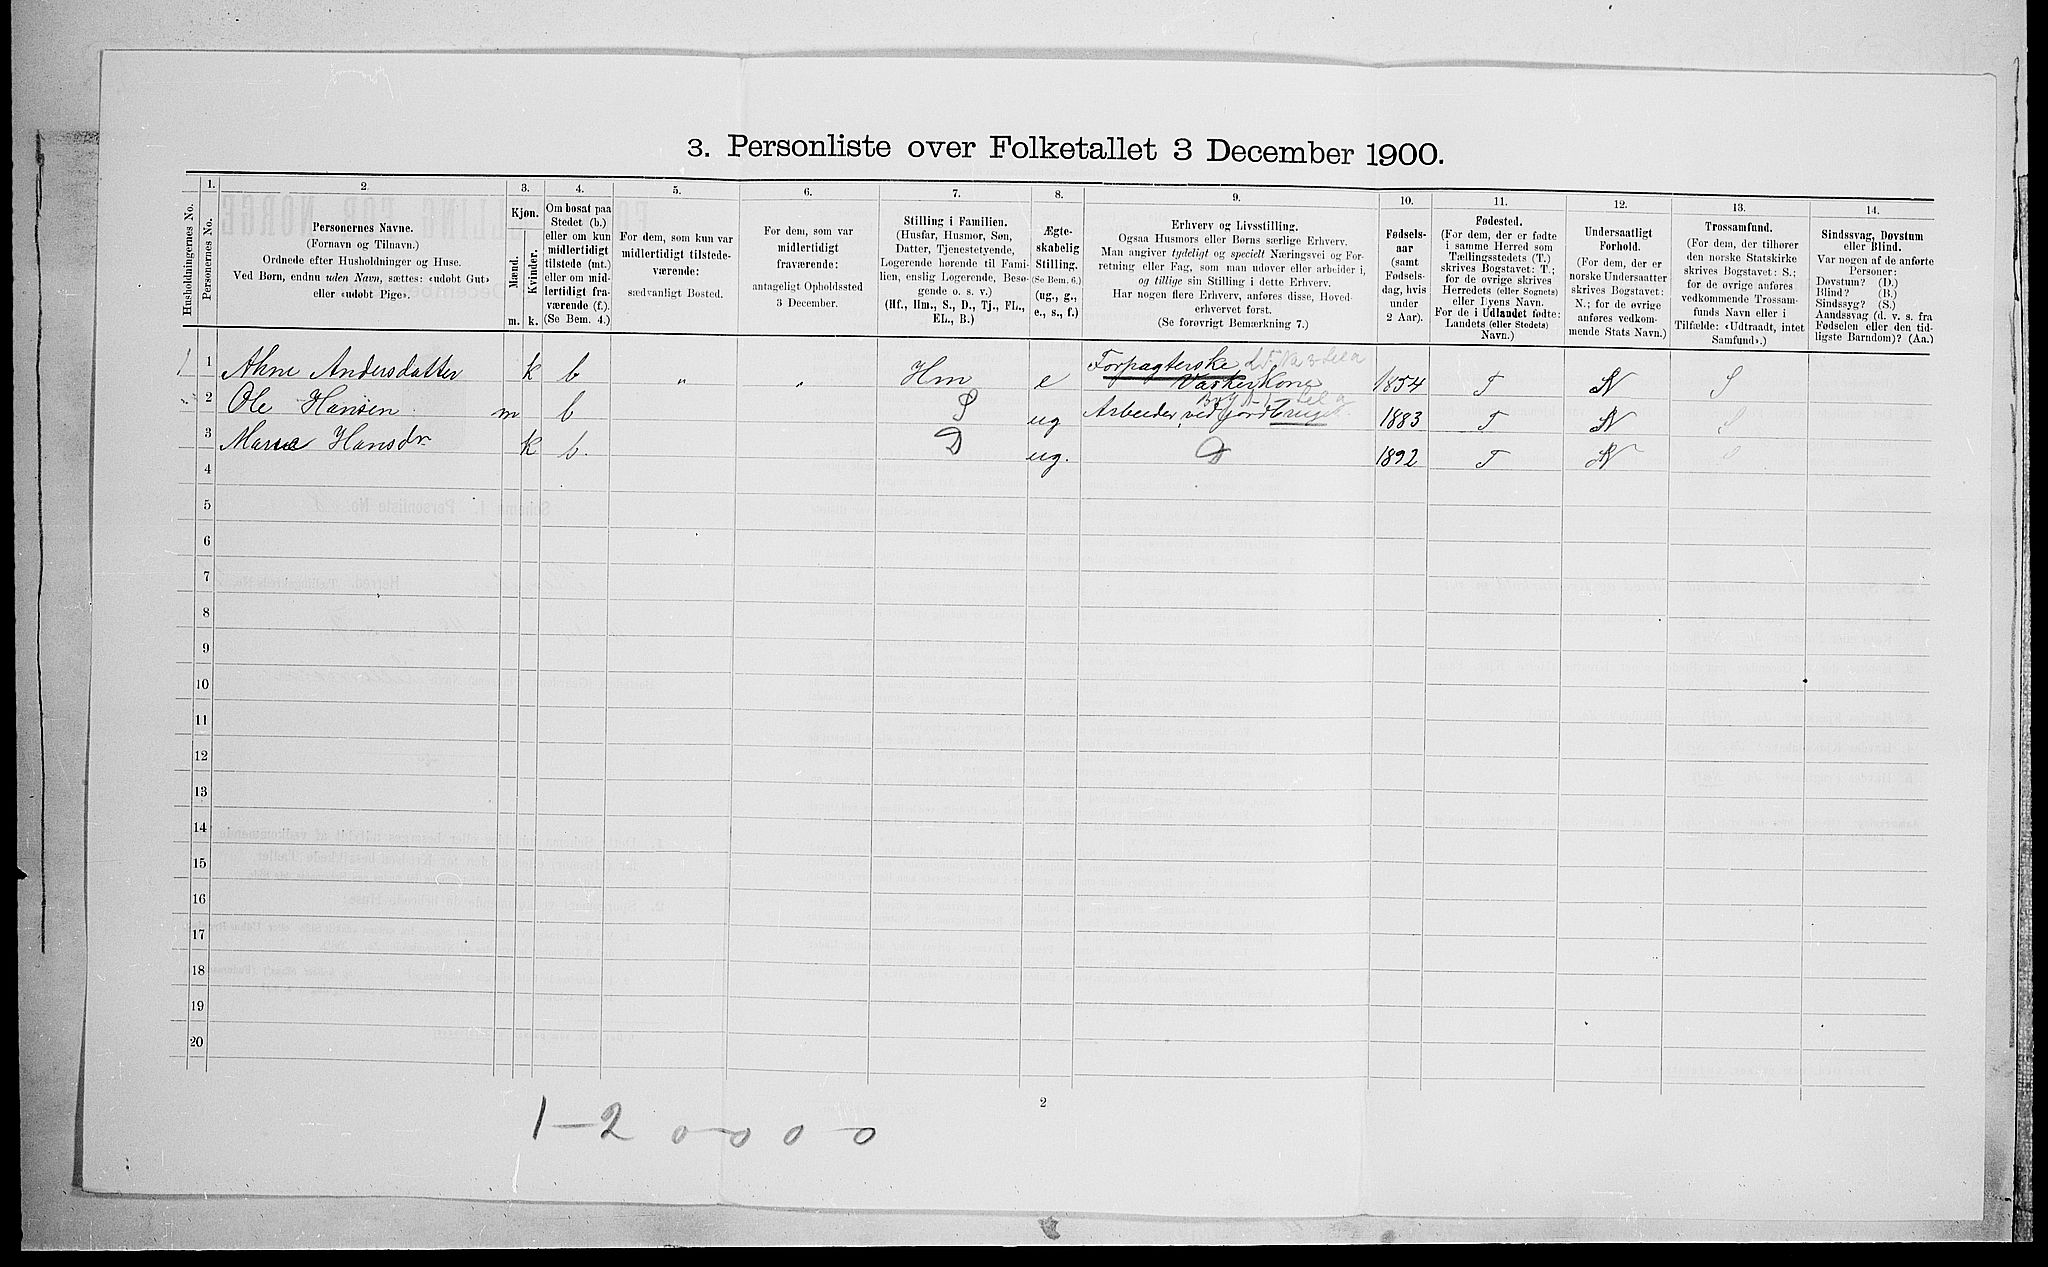 3. Personliste over Folketallet 3 December 1900.
1. 2. 3. 4. 5. 6. 7. 8. 9. 10. 11. 12. 13. 14.
Husholdningernes No.
Personernes No.
Personernes Navne.
(Fornavn og Tilnavn.)
Ordnede efter Husholdninger og Huse.
Ved Børn, endnu uden Navn, sættes: «udøbt Gut»
eller «udøbt Pige».
Kjøn.
Mænd.
Kvinder.
m. k.
Om bosat paa
Stedet (b.)
eller om kun
midlertidigt
tilstede (mt.)
eller om mid-
lertidigt fra-
værende (f.).
(Se Bem. 4.)
For dem, som kun var
midlertidigt tilstede-
værende:
sædvanligt Bosted.
For dem, som var
midlertidigt
fraværende:
antageligt Opholdssted
3 December.
Stilling i Familien.
(Husfar, Husmor, Søn,
Datter, Tjenestetyende,
Logerende hørende til Fami-
lien, enslig Logerende, Besø-
gende o. s. v.)
(Hf., Hm., S., D., Tj., FL.,
EL., B.)
Ægte-
skabelig
Stilling.
(Se Bem. 6.)
(ug., g.,
e., s., f.)
Erhverv og Livsstilling.
Ogsaa Husmors eller Børns særlige Erhverv.
Man angiver tydeligt og specielt Næringsvei og For-
retning eller Fag, som man udøver eller arbeider i,
og tillige sin Stilling i dette Erhverv.
Har nogen flere Erhverv, anføres disse, Hoved-
erhvervet først.
(Se forøvrigt Bemærkning 7.)
Fødsels-
aar
(samt
Fødsels-
dag, hvis
under
2 Aar).
Fødested.
(For dem, der er fødte
i samme Herred som
Tællingsstedets (T.)
skrives Bogstavet: T.;
for de øvrige skrives
Herredets (eller Sognets)
eller Byens Navn.
For de i Udlandet fødte:
Landets (eller Stedets)
Navn.)
Undersaatligt
Forhold.
(For dem, der er
norske Undersaatter
skrives Bogstavet:
N.; for de øvrige
anføres vedkom-
mende Stats Navn.)
Trossamfund.
(For dem, der tilhører
den norske Statskirke
skrives Bogstavet: S.;
for de øvrige anføres
vedkommende Trossam-
funds Navn eller i
Tilfælde: «Udtraadt, intet
Samfund».)
Sindssvag, Døvstum
eller Blind.
Var nogen af de anførte
Personer:
Døvstum? (D.)
Blind? (B.)
Sindssyg? (S.)
Aandssvag (d. v. s. fra
Fødselen eller den tid-
ligste Barndom)? (Aa.)
1 1 Ahne Andersdatter k b " " Hm e Forpagterske 1854 T N S
Vaskerkone
2 Ole Hansen m b S ug Arbeider ved Jordbruget 1883 T N S
3 Marie Hansdr k b. D ug. D 1892 T N S
4
5
6
7
8
9
10
11
12
13
14
15
16
17
18
19
20
2
1-2 0-0 0-0